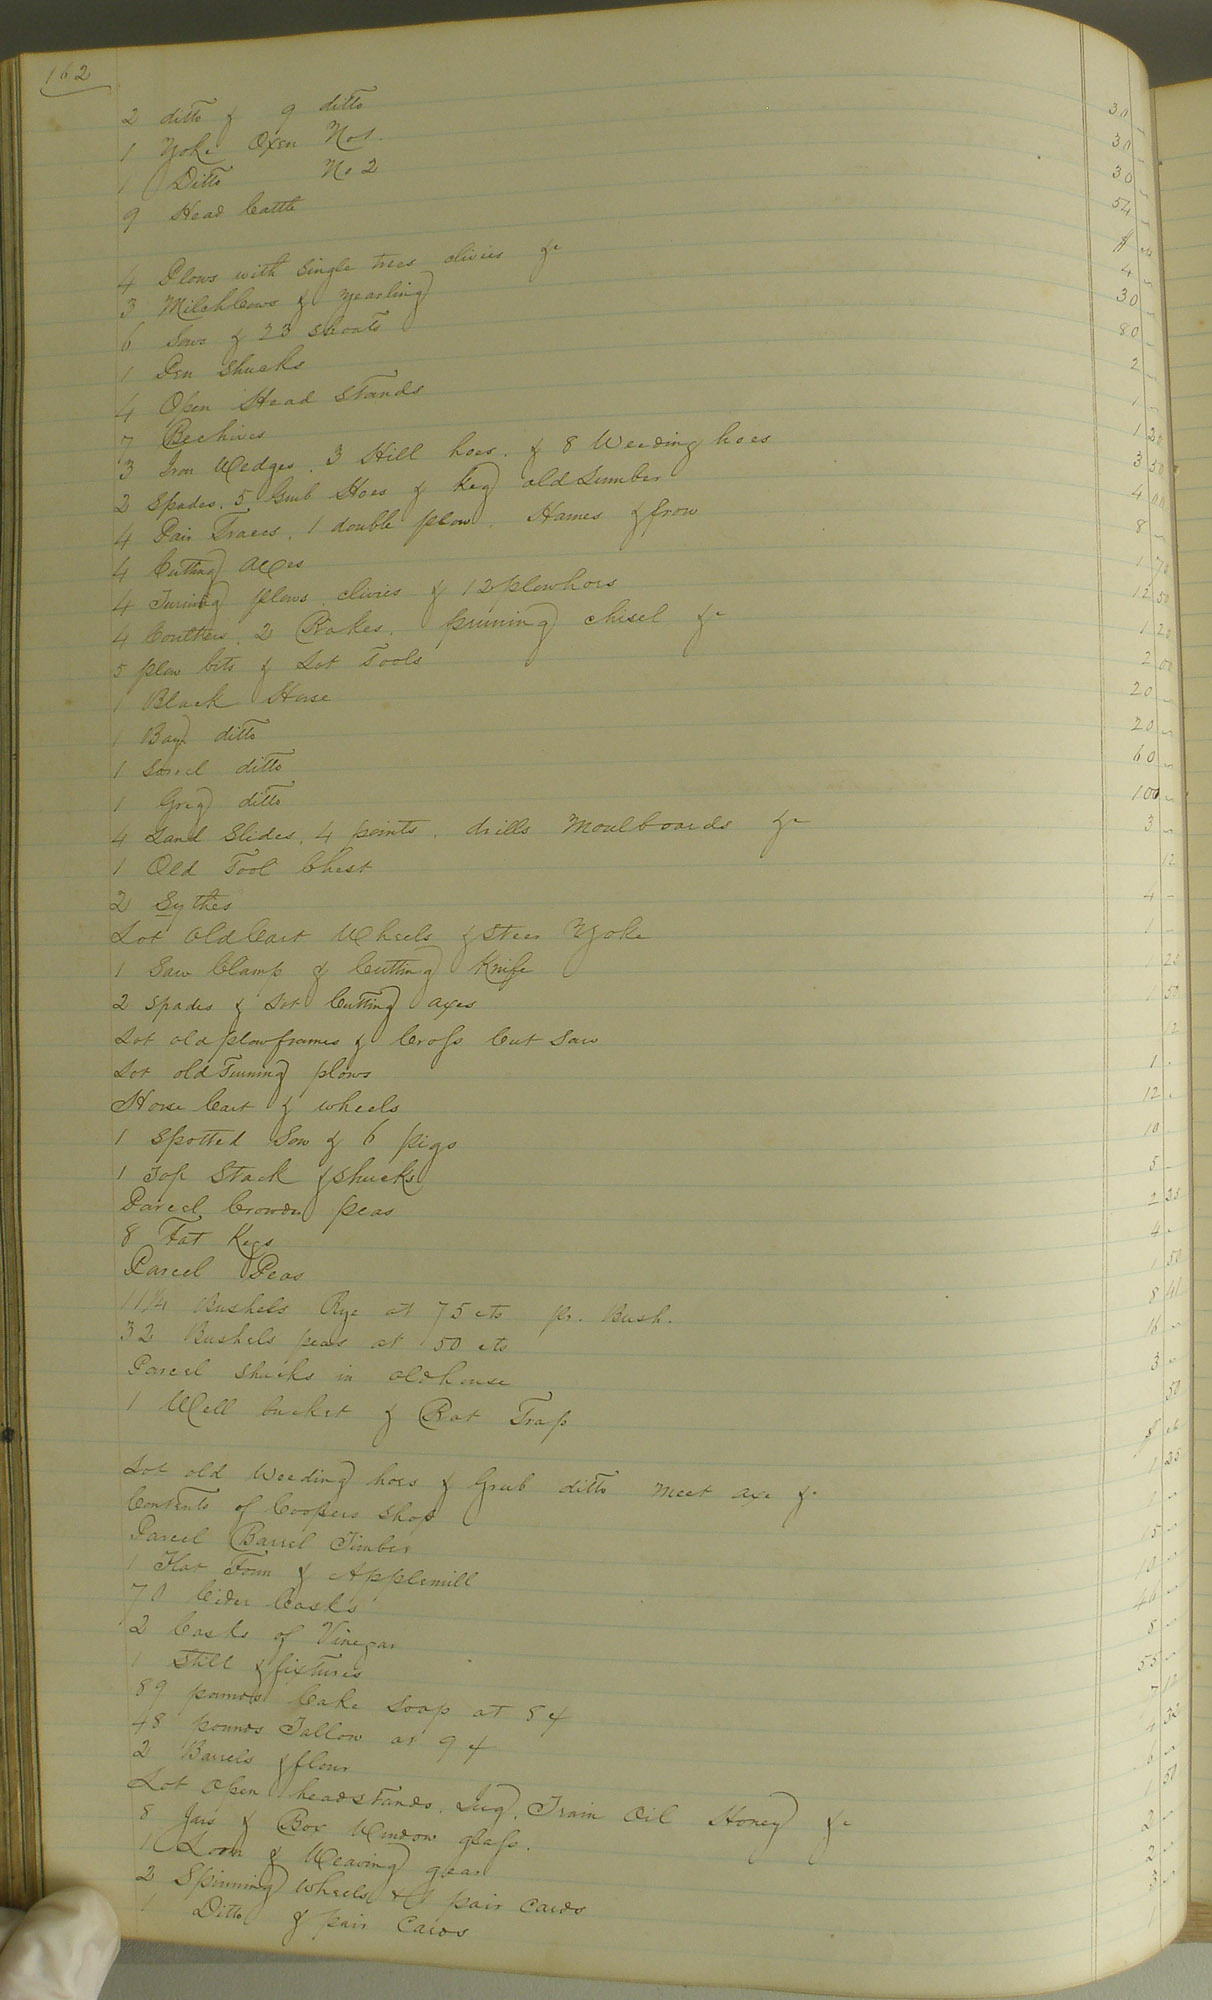 162
2 ditto & 9 ditto 30 –
1 Yoke Oxen No1. 30 –
1 Ditto No 2 30 –
9 Head Cattle 54 –
$ cts
4 Plows with Single trees clivies &c 4 –
3 Milch Cows & Yearling 30 –
6 Sows & 23 Shoats 80 –
1 Pen Shucks 2 –
4 Open Head Stands 1 –
7 Beehives 1 20
3 Iron Wedges. 3 Hill hoes. & 8 Weeding hoes 3 50
2 Spades. 5 Grub Hoes & Keg old Lumber 4 00
4 Pair Traces. 1 double plow. Hames & frow 8 –
4 Cutting Axes 1 70
4 Turning plows clivies & 12 plowhoes 12 50
4 Coulters. 2 Rakes. pruning chisel &c 1 20
5 plow bits & Lot Tools 2 00
1 Black Horse 20 –
1 Bay ditto 20 –
1 Sorrel ditto 60 –
1 Grey ditto 100 –
4 Land Slides. 4 points. drills Moulboards &c 3 –
1 Old Tool Chest 12
2 Sythes 4 –
Lot Old Cart Wheels & Steer Yoke 1 –
1 Saw Clamp & Cutting Knife 1 25
2 Spades & Lot Cutting axes 1 50
Lot old plowframes & Cross Cut Saw 12
Lot old Turning plows 1 -
Horse Cart & wheels 12 -
1 Spotted Sow & 6 pigs 10 -
1 Top Stack & shucks 5 –
Parcel Crowder peas 2 25
8 Fat Kegs 4 –
Parcel Peas 1 50
11¼ Bushels Rye at 75 cts pr. Bush. 8 41
32 Bushels peas at 50 cts 16 –
Parcel shucks in old house 3 –
1 Well bucket & Rat Trap 50
$ cts
Lot old Weeding hoes & Grub ditto meet axe &c 1 25
Contents of Coopers Shop 1 –
Parcel Barrel Timber 15 –
1 Flat Form & Applemill 10 –
70 Cider Casks 46 –
2 Casks of Vinegar 8 –
1 Still & fixtures 55 –
89 pounds Cake Soap at 8 ¢ 7 12
48 pounds Tallow at 9 ¢ 4 32
2 Barrels & flour 6 –
Lot Open headstands. Jug. Train Oil Honey &c 1 50
8 Jars & Box Window glass. 2 –
1 Loom & Weaving gear 2 –
2 Spinning wheels & 1 pair cards 3 –
1 Ditto & pair Cards 1